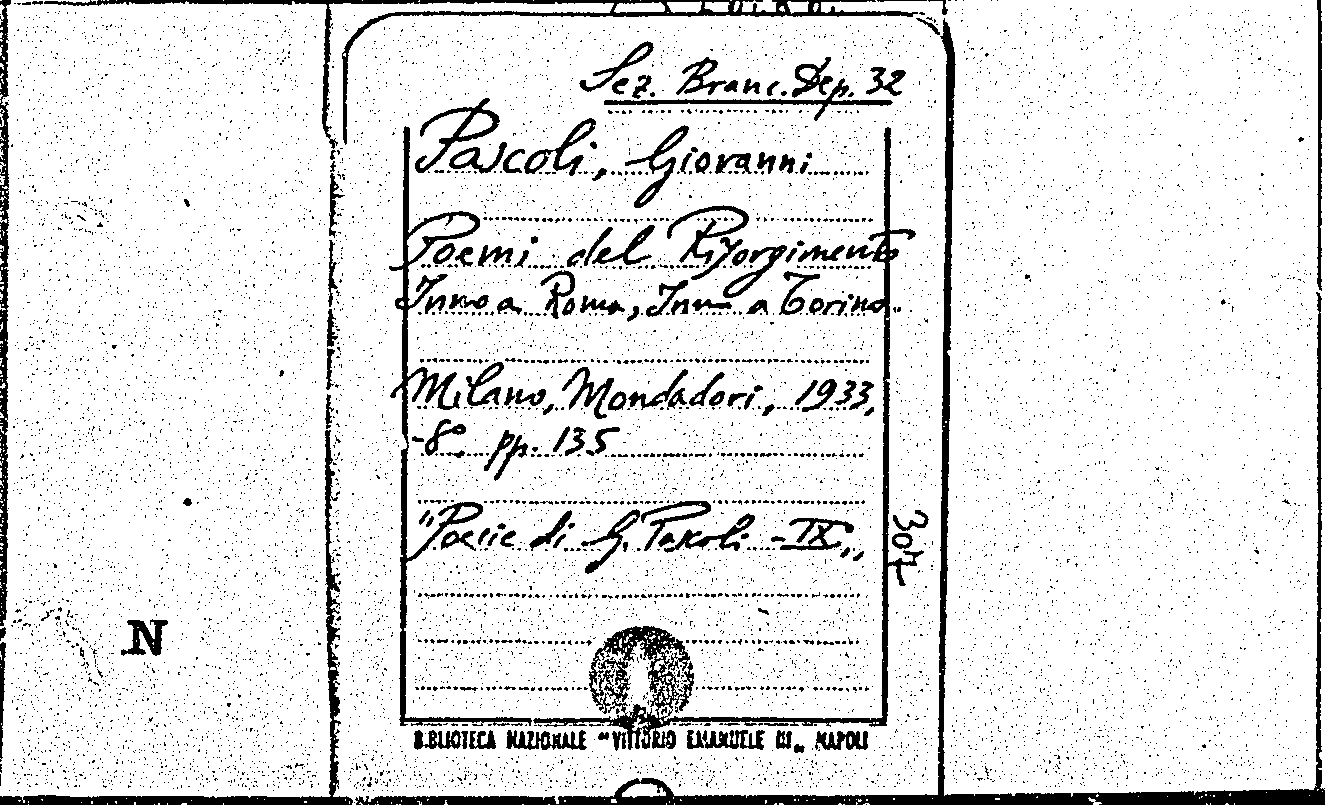 Sez. Branc. Dep. 32
Pascoli, Giovanni
Poemi del Risorgimento
Inno a Roma, Inno a Torino.
Milano, Mondadori, 1933,
-8°. pp. 135
"Poesie di G. Pascoli - IX„
307
N
BIBLIOTECA NAZIONALE "VITTORIO EMANUELE III„ NAPOLI